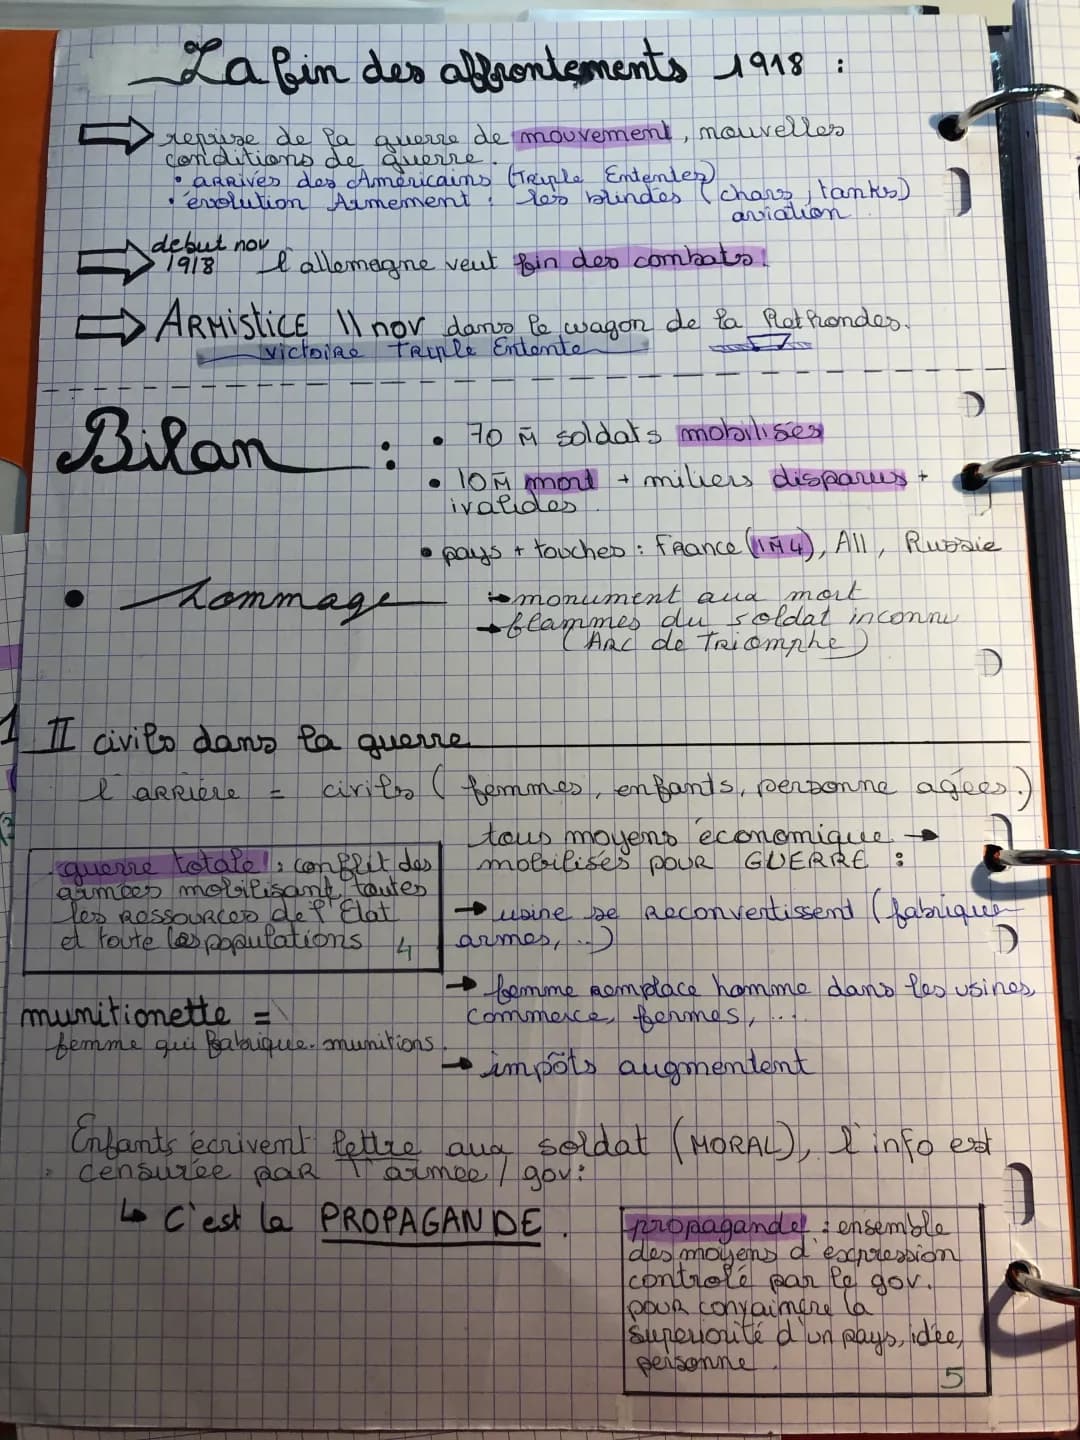 La fin des affrontements 1918 :
reprise de la guerre de mouvement, nouvelles
conditions de guerre.
• ARRIVÉS des Américains (Triple Entente)
• évolution Armement : les blindés (chars, tanks)
aviation.
debut nov
1918 l'allemagne veut fin des combats.
ARMISTICE 11 nov dans le wagon de la Rethondes.
victoire TRIPLE Entente
Bilan :
• 70 M soldats mobilisés
• 10M mort + miliers disparus +
ivalides.
• pays + touches : FRance (1M4), All, Russie
• hommage
→ monument aux mort
→ flammes du soldat inconnu
(ARC de TRiomphe)
1
II civils dans la guerre
l'ARRIÈRE = civils ( femmes, enfants, personne agées.)
tous moyens économique →
mobilisés pour GUERRE :
guerre totale : conflit des
armées mobilisant toutes
les RessouRces de l'État
et toute les populations
4
→ usine se Reconvertissent (fabrique
armes, ..)
→ femme remplace homme dans les usines,
commerce, fermes, ...
munitionette =
femme qui fabrique munitions.
→ impôts augmentent
Enfants écrivent lettre aux soldat (MORAL), l'info est
censurée paR l'armée / gov :
↳ C'est la PROPAGANDE.
propagande : ensemble
des moyens d'expression
controlé par le gov.
pour convaincre la
superiorité d'un pays, idée,
personne.
5